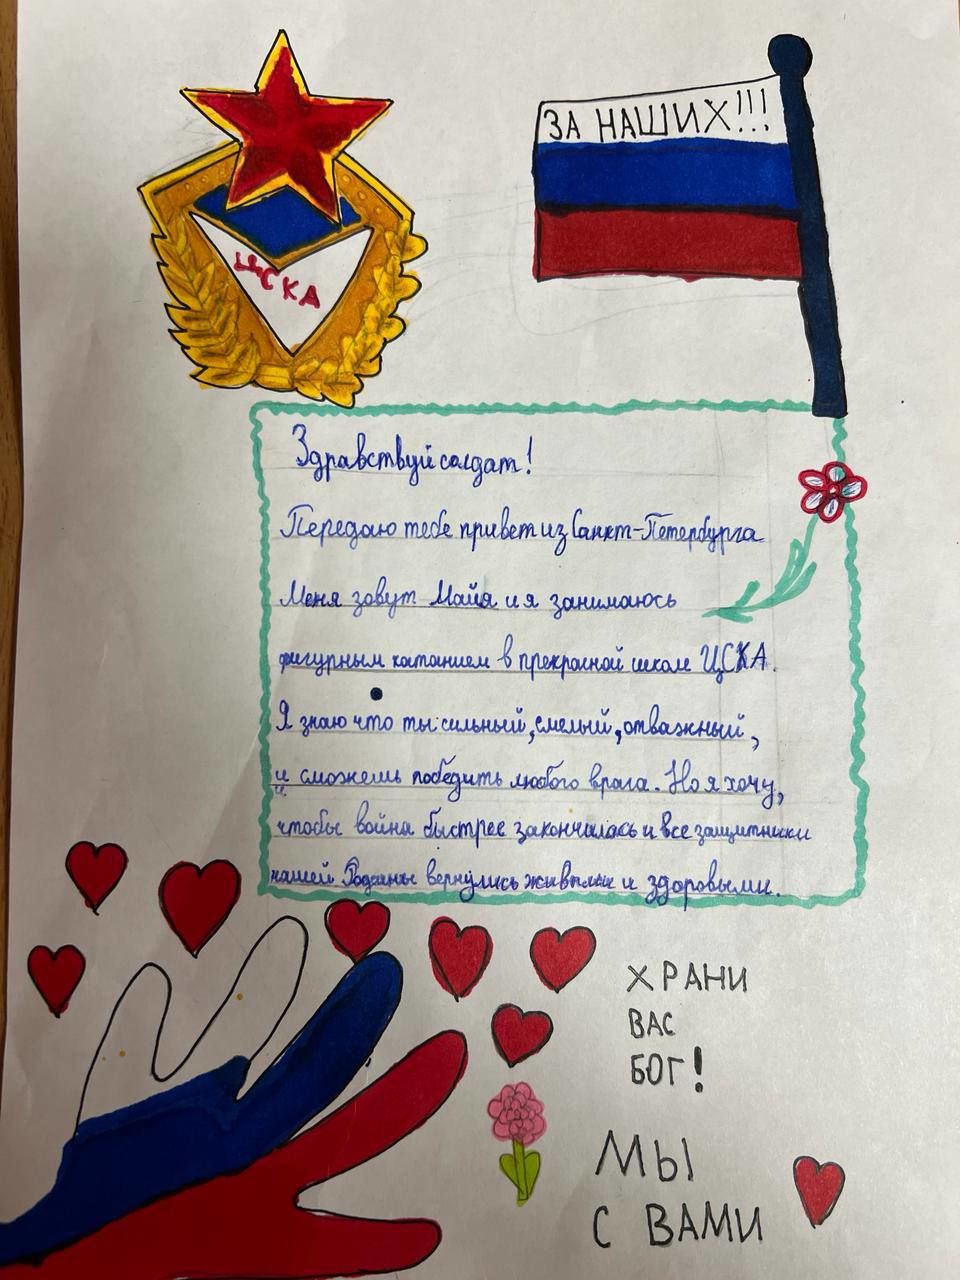 ЦСКА
ЗА НАШИХ!!!
Здравствуй солдат!
Передаю тебе привет из Санкт-Петербурга
Меня зовут Майя и я занимаюсь
фигурным катанием в прекрасной школе ЦСКА.
Я знаю что ты сильный, смелый, отважный,
и сможешь победить любого врага. Но я хочу,
чтобы война быстрее закончилась и все защитники
нашей Родины вернулись живыми и здоровыми.
ХРАНИ
ВАС
БОГ!
МЫ
С ВАМИ